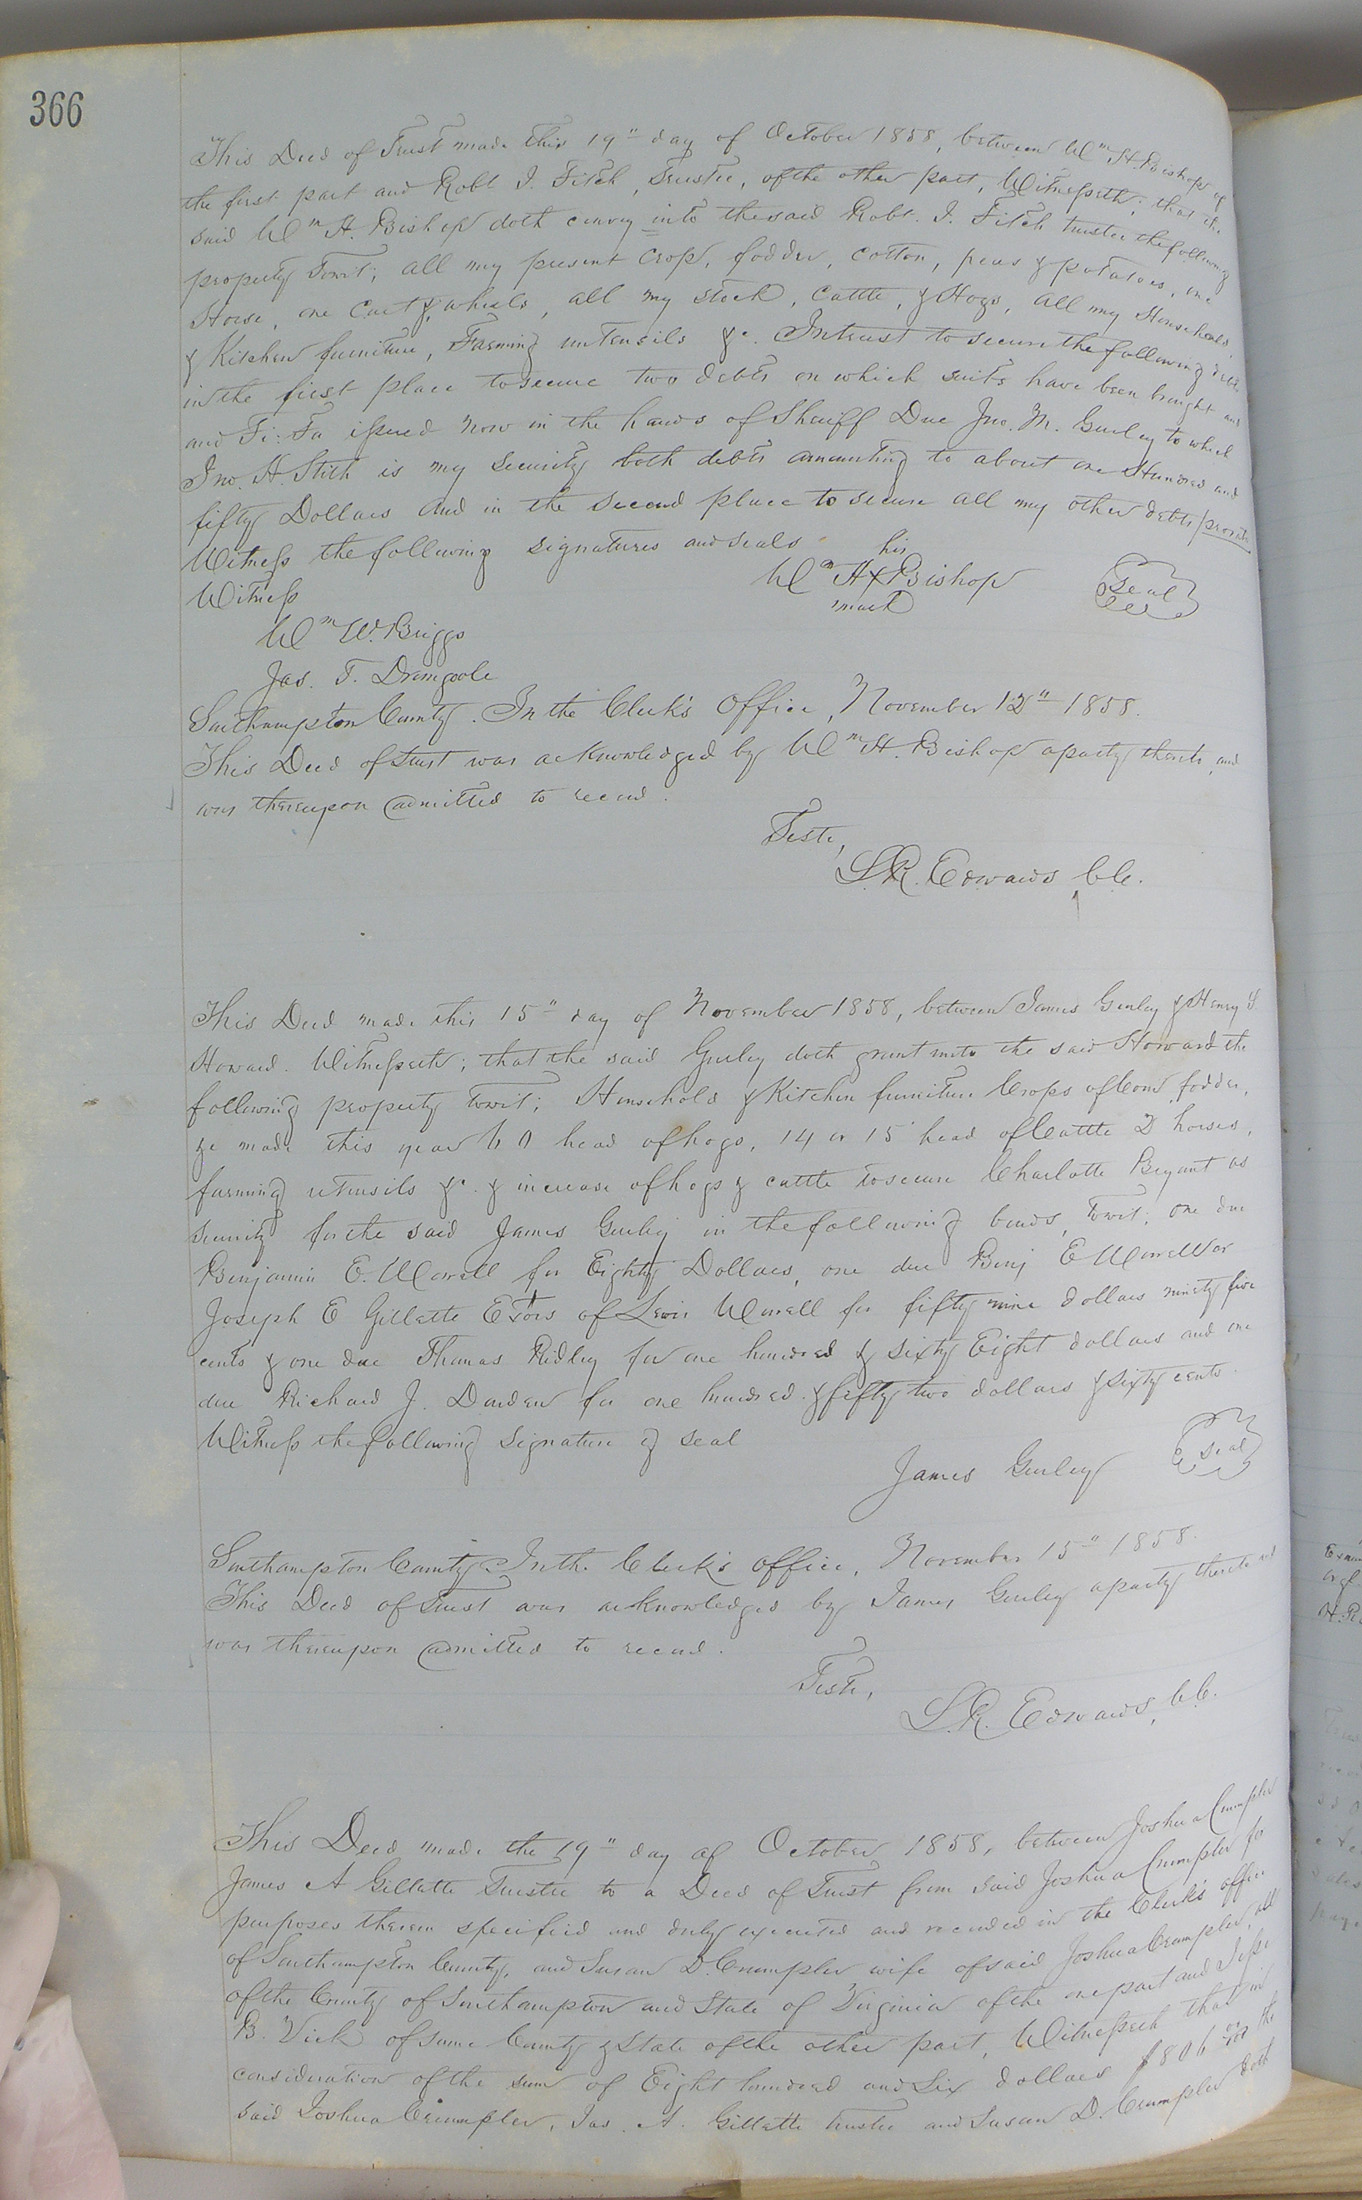 366
This Deed of Trust made this 19" day of October 1858, between Wm H. Bishop of
the first part and Robt I. Fitch, Trustee, of the other part, Witnesseth; that the
said Wm H. Bishop doth convey into the said Robt. I. Fitch trustee the following
property Towit; all my present crop, fodder, cotton, peas & potatoes, one
Horse, one Cart & wheels, all my stock, Cattle, & Hogs, all my Household
& Kitchen furniture, Farming untensils &c. In trust to secure the following debts
in the first place to secure two debts on which suits have been brought and
and Fi: Fa issued now in the hands of Sheriff Due Jno. M. Gurley to which
Jno. H. Stith is my security both debts amounting to about one Hundred and
fifty Dollars and in the second place to secure all my other debts prorata
Witness the following signatures and seals
his
Wm H x Bishop Seal
mark
Witness
Wm W. Briggs
Jas. T. Dromgoole
Southampton County. In the Clerk's Office, November 12" 1858.
This Deed of Trust was acknowledged by Wm H. Bishop a party thereto, and
was thereupon admitted to record.
Teste,
L.R. Edwards, CC.
This Deed made this 15" day of November 1858, between James Gurley & Henry
Howard. Witnesseth; that the said Gurley doth grant unto the said Howard the
following property towit; Household & Kitchen furniture Crops of Corn, fodder,
&c made this year head of hogs, 14 or 15 head of Cattle 2 horses,
farming utensils &c. & increase of hogs & cattle to secure Charlotte Bryant as
security for the said James Gurley in the following bonds, towit; one due
Benjamin E. Worrell for Eighty Dollars, one due Benj E Worrell or
Joseph E Gillette Extors of Lewis Worrell for fifty nine dollars ninety five
cents & one due Thomas Ridley for one hundred & sixty Eight dollars and one
due Richard J. Darden for one hundred & fifty two dollars & sixty cents.
Witness the following signature & seal
James Gurley Seal
Southampton County. In the Clerk's office, November 15" 1858.
This Deed of Trust was acknowledged by James Gurley a party thereto and
was thereupon admitted to record.
Teste,
L.R. Edwards, CC.
This Deed made the 19" day of October 1858, between Joshua Crumpler
James A Gillette Trustee to a Deed of Trust from said Joshua Crumpler for
purposes therein specified and duly executed and recorded in the Clerk's office
of Southampton County, and Susan D. Crumpler wife of said Joshua Crumpler, all
of the County of Southampton and State of Virginia of the one part and Jesse
B. Vick of same County & State of the other part, Witnesseth that in
consideration of the sum of Eight hundred and Six dollars $806 the
said Joshua Crumpler, Jas. A. Gillette trustee and Susan D. Crumpler doth